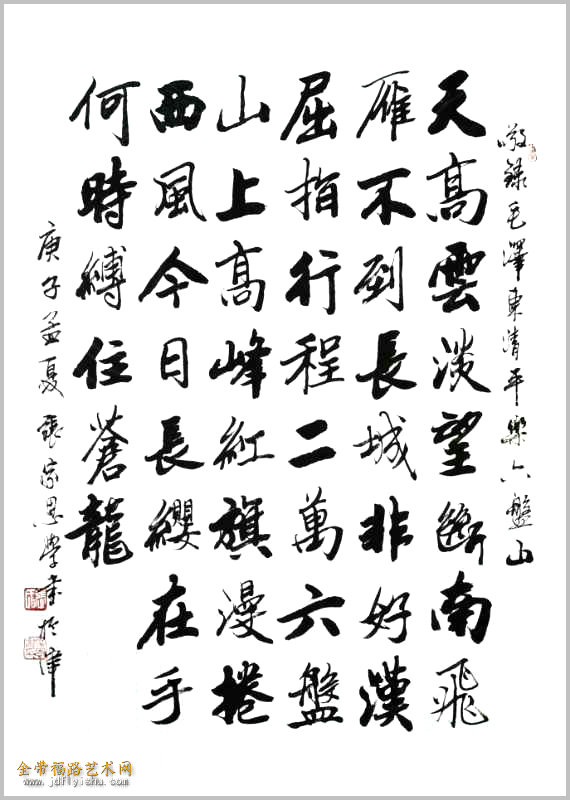 敬錄毛澤東清平樂六盤山
天高雲淡望斷南飛
雁不到長城非好漢
屈指行程二萬六盤
山上高峰紅旗漫捲
西風今日長纓在手
何時縛住蒼龍
庚子孟夏
金带福路艺术网
www.jdflyishu.com